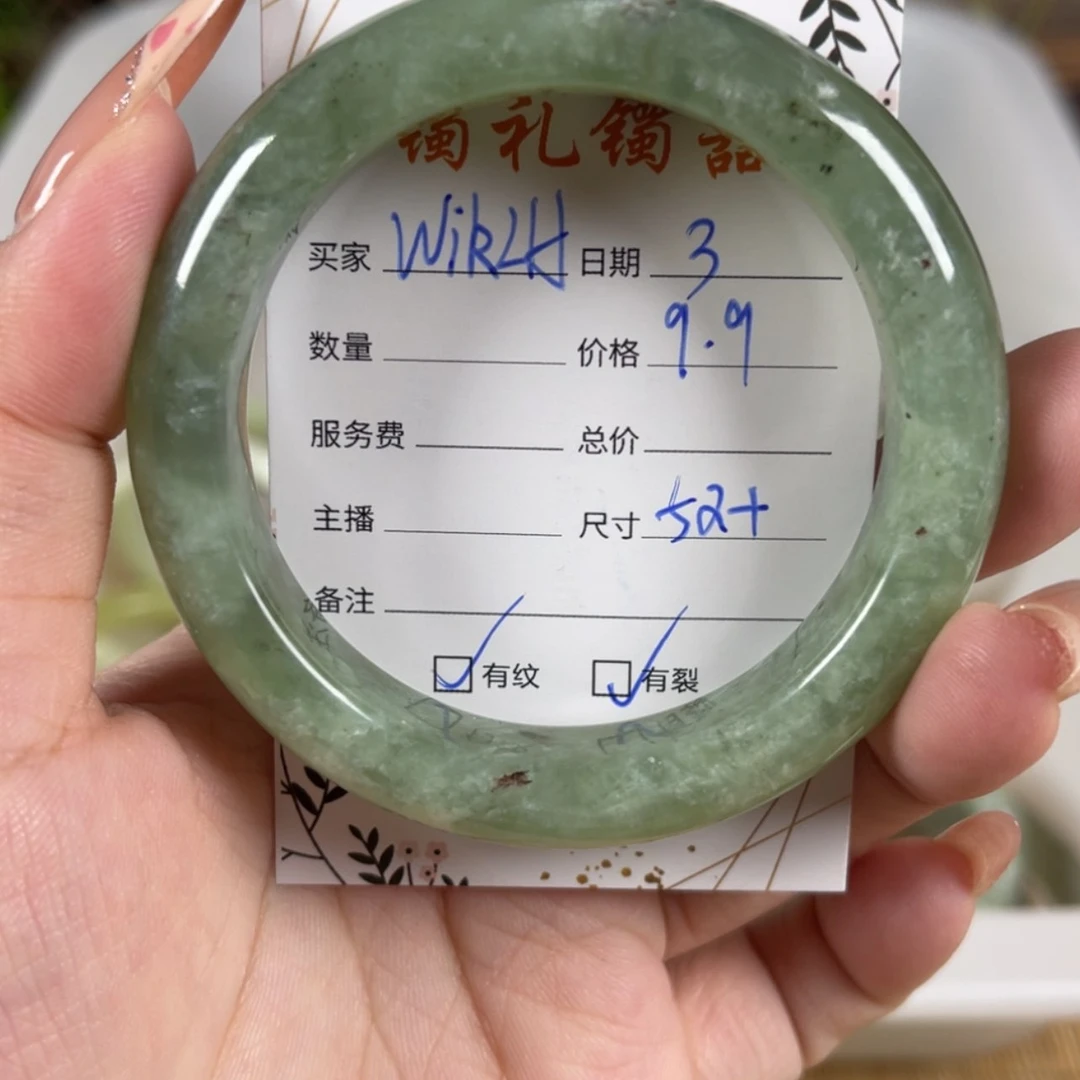 镯礼镯器
买家 WiRLH 日期 3
数量 价格 9.9
服务费 总价
主播 尺寸 52+
备注
☑ 有纹 ☑ 有裂